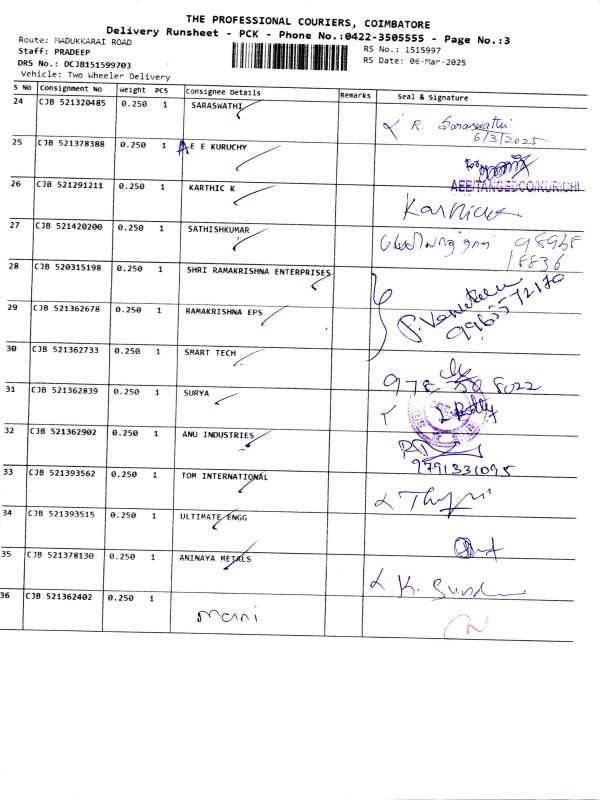 THE PROFESSIONAL COURIERS, COIMBATORE
Delivery Runsheet - PCK - Phone No.:0422-3505555 - Page No.:3
Route: MADUKKARAI ROAD
RS No.: 1515997
Staff: PRADEEP
RS Date: 06-Mar-2025
DRS No.: DCJB151599703
Vehicle: Two Wheeler Delivery
S No Consignment No Weight PCS Consignee Details Remarks Seal & Signature
24 CJB 521320485 0.250 1 SARASWATHI R Saraswathi
6/3/2025
25 CJB 521378388 0.250 1 A E E KURUCHY for
AEE/TANGEDCO/KURICHI
26 CJB 521291211 0.250 1 KARTHIC K
27 CJB 521420200 0.250 1 SATHISHKUMAR
18836
28 CJB 520315198 0.250 1 SHRI RAMAKRISHNA ENTERPRISES
29 CJB 521362678 0.250 1 RAMAKRISHNA EPS
30 CJB 521362733 0.250 1 SMART TECH
31 CJB 521362839 0.250 1 SURYA
32 CJB 521362902 0.250 1 ANU INDUSTRIES
9791331095
33 CJB 521393562 0.250 1 TOM INTERNATIONAL
34 CJB 521393515 0.250 1 ULTIMATE ENGG
35 CJB 521378130 0.250 1 ANINAYA METALS
36 CJB 521362402 0.250 1 mani